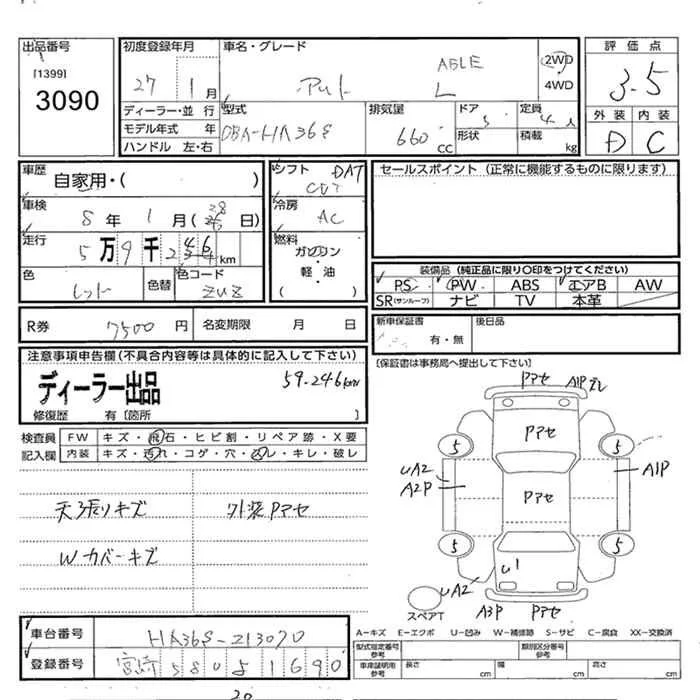 出品番号
[1399]
3090
初度登録年月
27 1月
車名・グレード
アルト ABLE L
2WD
4WD
評価点
3.5
外装 内装
D C
ディーラー・並行
モデル年式 年
ハンドル 左・右
型式
DBA-HA36S
排気量
660 CC
ドア
5
形状
定員
4人
積載 kg
車歴
自家用・( )
車検
8年 1月 日)
走行
5万9千246km
色
レッド
色替
色コード
ZUZ
シフト DAT
CVT
冷房
AC
燃料
ガソリン
・
軽・油
( )
セールスポイント (正常に機能するものに限ります)
装備品 (純正品に限り〇印をつけてください)
PS PW ABS エアB AW
SR(サンルーフ) ナビ TV 本革
R券 7500円
名変期限 月 日
新車保証書
有・無
後日品
[保証書は事務局へ提出して下さい]
注意事項申告欄(不具合内容等は具体的に記入して下さい)
ディーラー出品
59.246km
修復歴 有〔箇所 〕
検査員
記入欄
FW キズ・飛石・ヒビ割・リペア跡・X要
内装 キズ・汚れ・コゲ・穴・スレ・キレ・破レ
天張りキズ
外装Pアセ
Wカバーキズ
Pアセ
A1P
Pアセ
5
5
UA2
A2P
A1P
Pアセ
5
5
U1
UA2
スペアT
A3P Pアセ
A-キズ E-エクボ U-凹み W-補修跡 S-サビ C-腐食 XX-交換済
型式指定番号
参考
類別区分番号
参考
車庫証明用
参考
長さ cm
幅 cm
高さ cm
車台番号
HA36S-213070
登録番号
宮崎 580 さ 1690